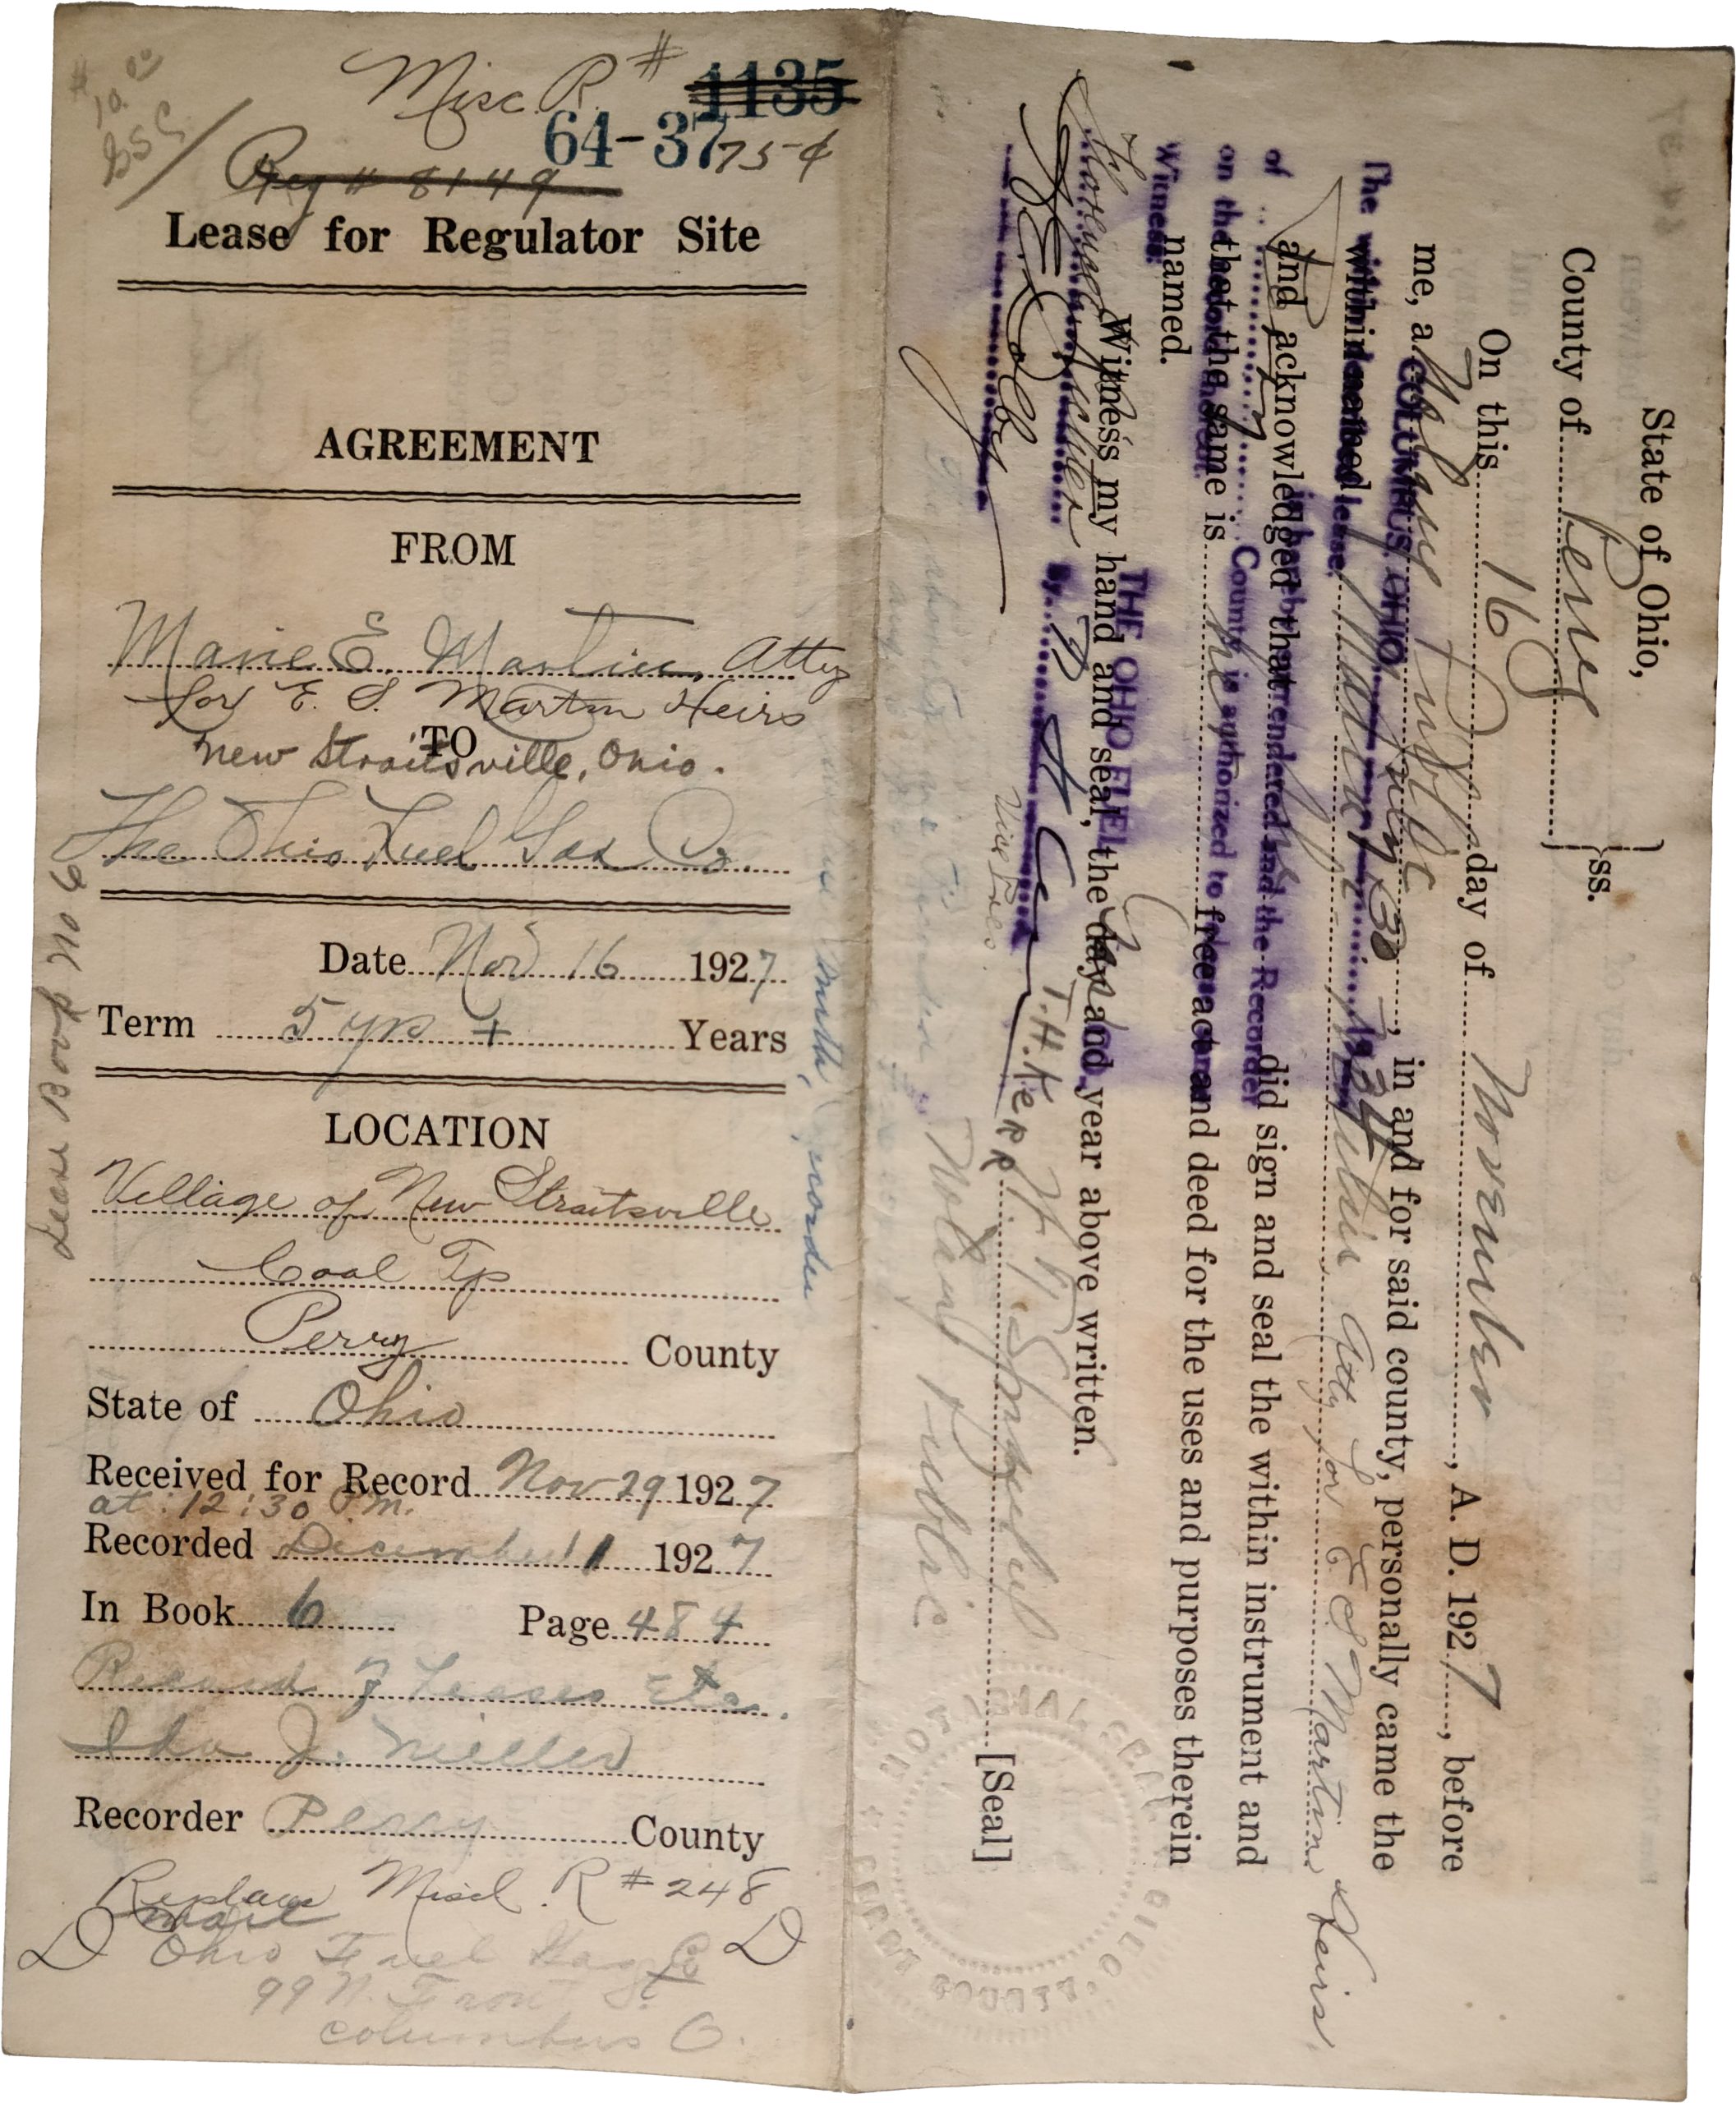 # 10.00
Misc. R. # 1135
64-37 75¢
Reg # 8149
Lease for Regulator Site
AGREEMENT
FROM
Marie E. Martin, Atty
for E. S. Martin Heirs
TO
New Straitsville, Ohio.
The Ohio Fuel Gas Co.
Lease Book No 6
Date Nov 16 1927
Term 5 yrs + Years
LOCATION
Village of New Straitsville
Coal Tp
Perry County
State of Ohio
Received for Record Nov 29 1927
at 12:30 P.M.
Recorded December 1 1927
In Book 6 Page 484
Record of Leases Etc.
Ida J. Miller
Recorder Perry County
Replace Miscl. R # 248
Mail
D Ohio Fuel Gas Co D
99 N. Front St
Columbus O.
State of Ohio,
County of Perry } ss.
On this 16 day of November, A. D. 1927, before
me, a Notary Public, in and for said county, personally came the
within named Marie E. Martin Atty for E S Martin Heirs
and acknowledged that she did sign and seal the within instrument and
that the same is her free act and deed for the uses and purposes therein
named.
Witness my hand and seal, the day and year above written.
[Seal]
Notary Public
COLUMBUS, OHIO,
The within described lease
is hereby surrendered and the Recorder
of Perry County is authorized to release
on the record thereof.
Witness:
THE OHIO FUEL GAS CO.
By
Vice Pres.
T.H. Kerr